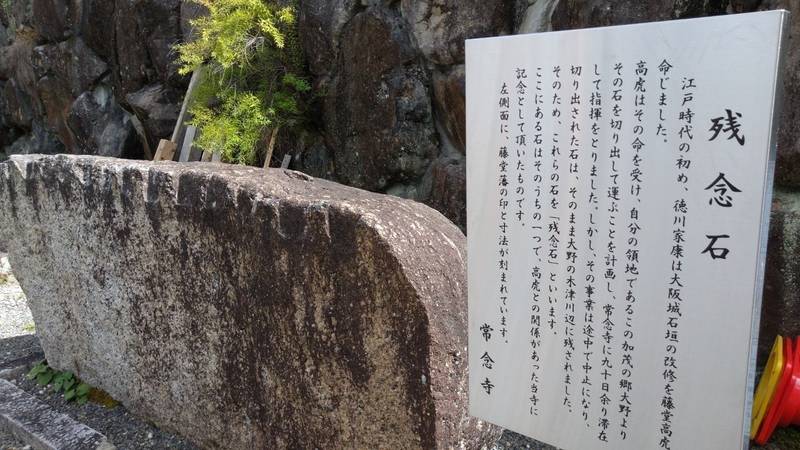 残念石
江戸時代の初め、徳川家康は大阪城石垣の改修を藤堂高虎
命じました。
高虎はその命を受け、自分の領地であるこの加茂の郷大野より
その石を切り出して運ぶことを計画し、常念寺に九十日余り滞在
して指揮をとりました。しかし、その事業は途中で中止になり、
切り出された石は、そのまま大野の木津川辺に残されました。
そのため、これらの石を「残念石」といいます。
ここにある石はそのうちの一つで、高虎との関係があった当寺に
記念として頂いたものです。
左側面に、藤堂藩の印と寸法が刻まれています。
常念寺